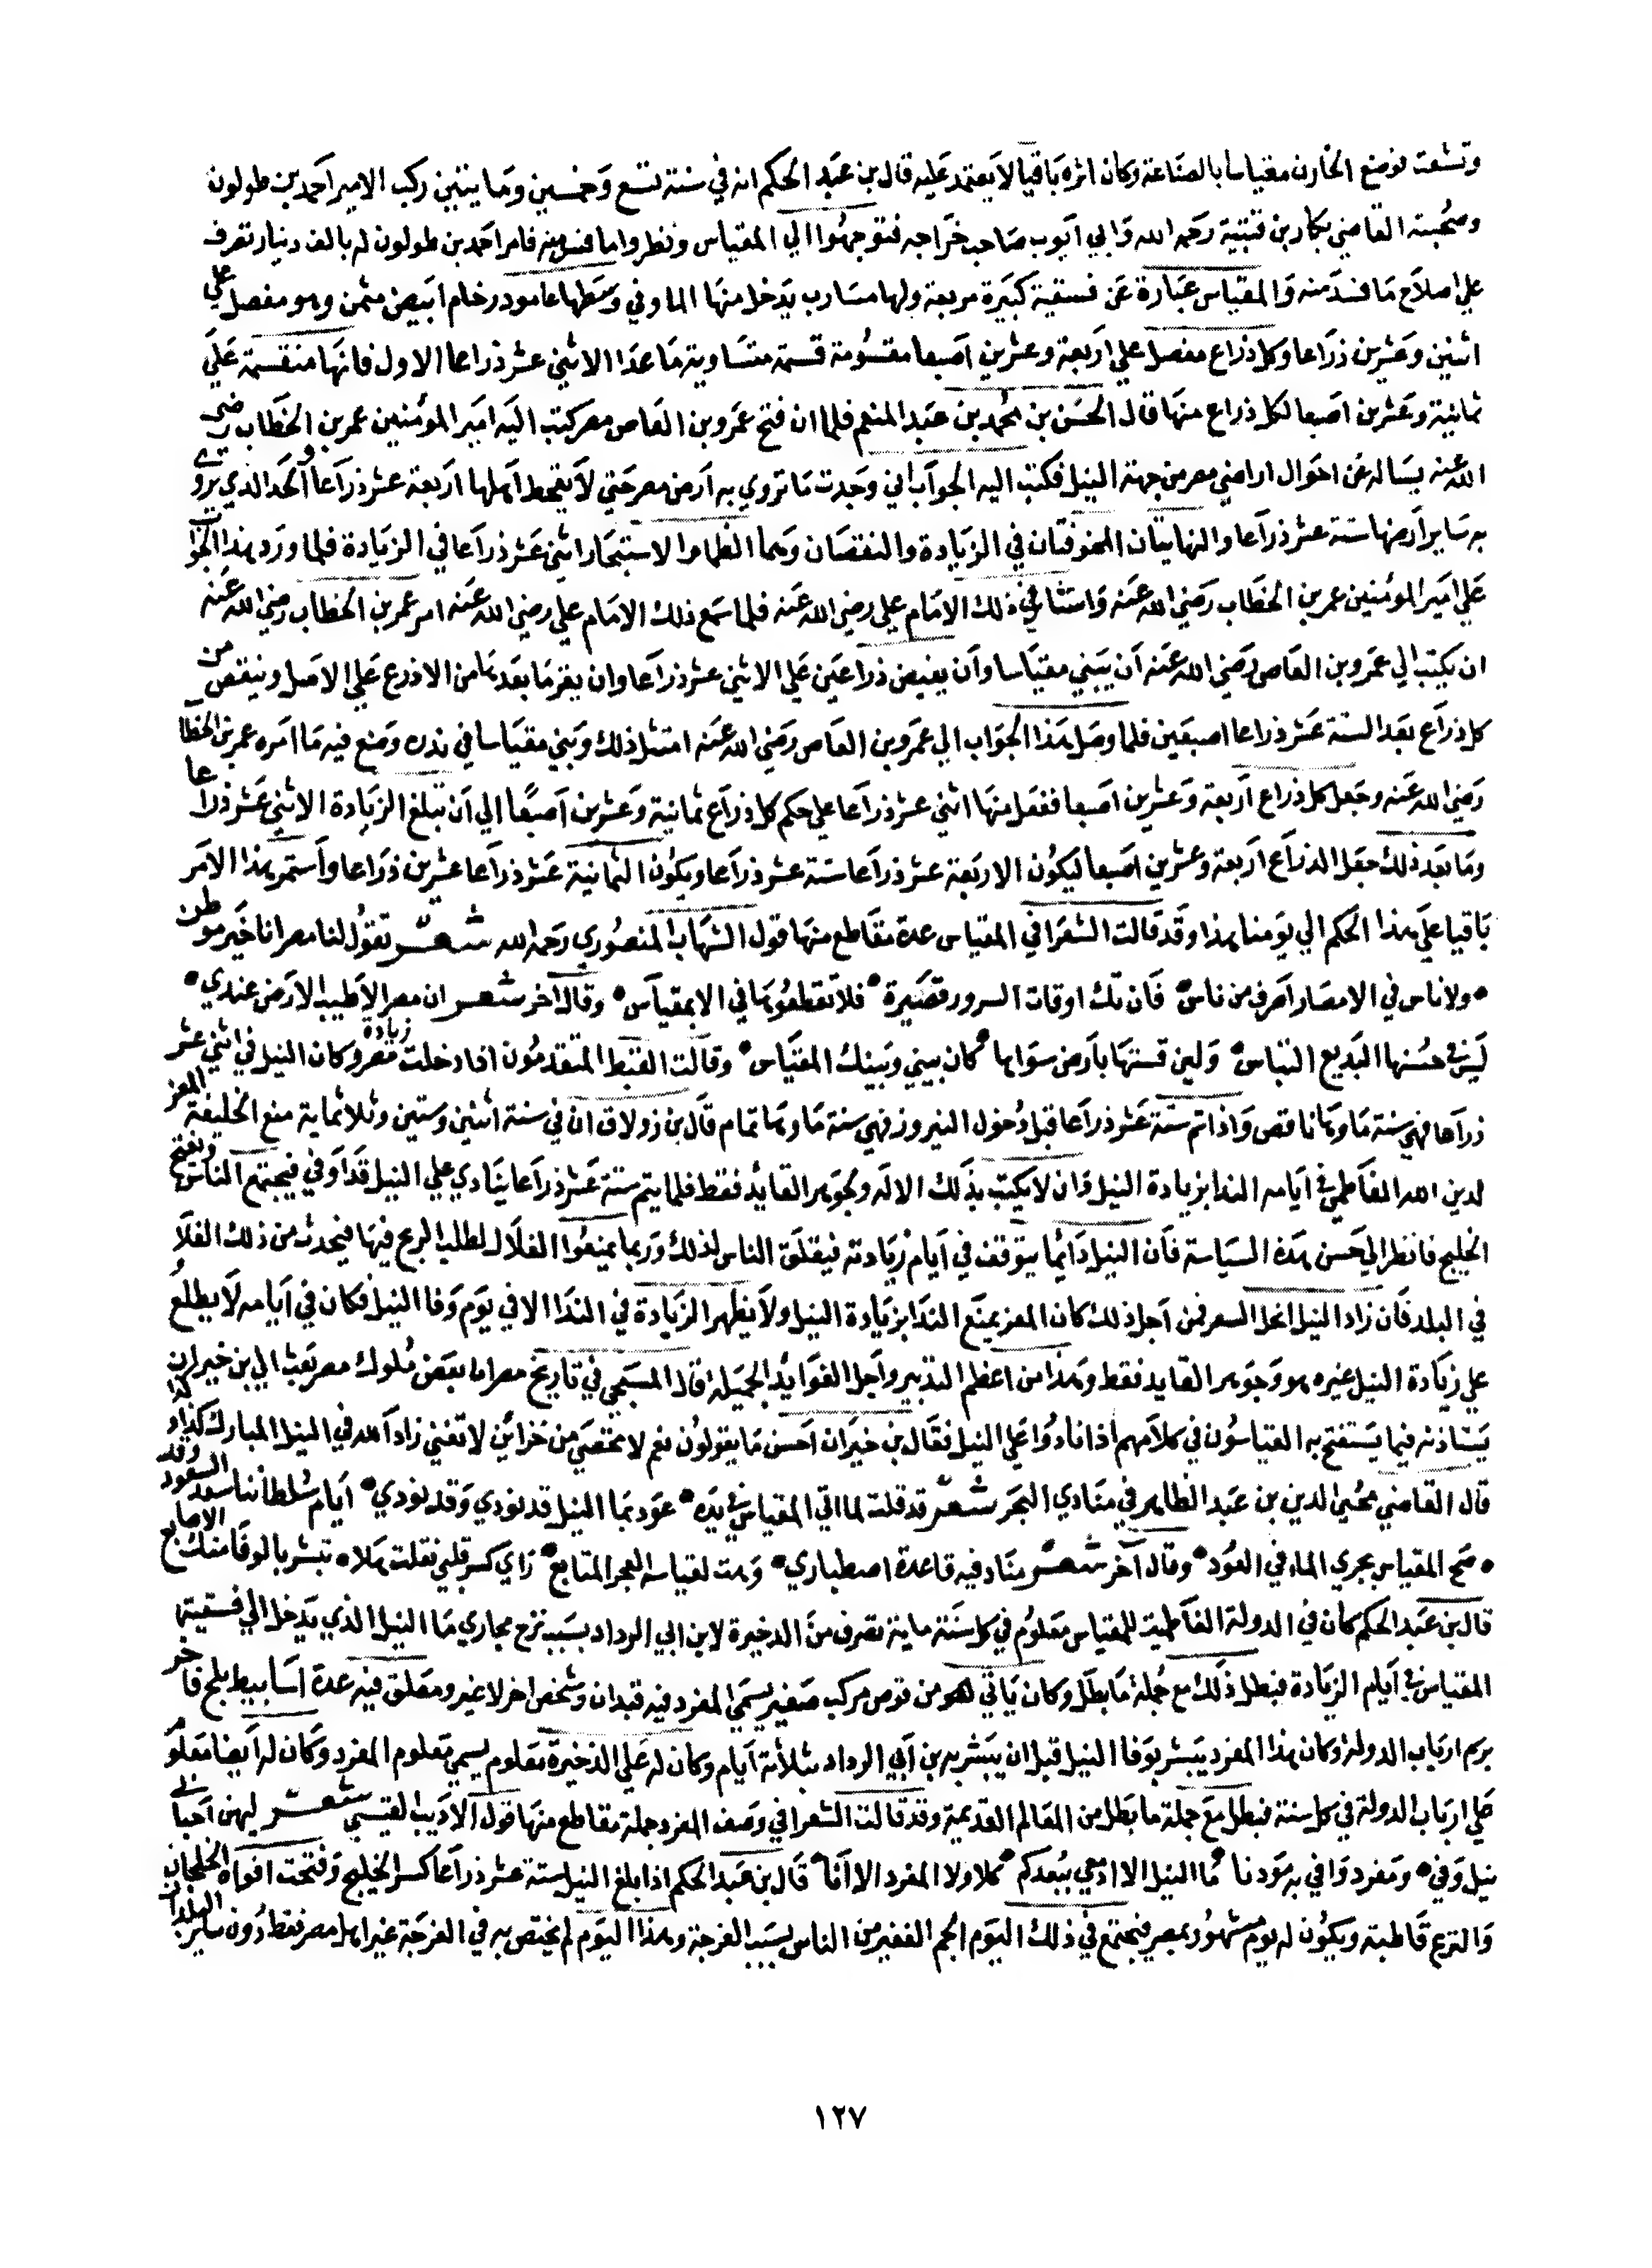 وتشعت فوضع الخازن مقياسا بالصناعة وكان اثره باقيا لا يعتمد عليه قال بن عبد الحكم انه في سنة تسع وخمسين ومايتين ركب الامير احمد بن طولون
وصحبته القاضي بكار بن قتيبة رحمه الله وابي ايوب صاحب خراجه فتوجهوا الي المقياس ونظروا ما فسد منه فامر احمد بن طولون له بالف دينار تصرف
علي اصلاح ما فسد منه والمقياس عبارة عن فسقية كبيرة مربعة ولها مسارب يدخل منها الما وفي وسطها عامود رخام ابيض مثمن وهو مفصل علي
اثنين وعشرين ذراعا وكل ذراع مفصل علي اربعة وعشرين اصبعا مقسومة قسمة متساوية ما عدا الاثني عشر ذراعا الاول فانها منقسمة علي
ثمانية وعشرين اصبعا لكل ذراع منها قال الحسن بن محمد بن عبد المنعم فلما ان فتح عمرو بن العاص مصر كتب اليه امير المؤمنين عمر بن الخطاب رضي
الله عنه يساله عن احوال اراضي مصر من جهة النيل فكتب اليه الجواب اني وجدت ما تروي به ارض مصر حتي لا يقحط اهلها اربعة عشر ذراعا والحد الذي يروي
به ساير ارضها ستة عشر ذراعا والنهايتان المخوفتان في الزيادة والنقصان وهما الظما والاستبحار اثني عشر ذراعا في الزيادة فلما ورد هذا الجواب
علي امير المؤمنين عمر بن الخطاب رضي الله عنه واستشار في ذلك الامام علي رضي الله عنه فلما سمع ذلك الامام علي رضي الله عنه امر عمر بن الخطاب رضي الله عنه
ان يكتب الي عمرو بن العاص رضي الله عنه ان يبني مقياسا وان يفيض ذراعين علي الاثني عشر ذراعا وان يقر ما بعدها من الاذرع علي الاصل وينقص من
كل ذراع بعد الستة عشر ذراعا اصبعين فلما وصل هذا الجواب الي عمرو بن العاص رضي الله عنه امتثل ذلك وبني مقياسا في وضع فيه ما امره عمر بن الخطاب
رضي الله عنه وجعل كل ذراع اربعة وعشرين اصبعا ففعل منها اثني عشر ذراعا علي حكم كل ذراع ثمانية وعشرين اصبعا الي ان تبلغ الزيادة الاثني عشر ذراعا
وما بعد ذلك جعل الذراع اربعة وعشرين اصبعا ليكون الاربعة عشر ذراعا ستة عشر ذراعا ويكون الثمانية عشر ذراعا عشرين ذراعا واستمر هذا الامر
باقيا علي هذا الحكم الي يومنا هذا وقد قالت الشعرا في المقياس عدة مقاطع منها قول الشهاب المنصوري رحمه الله شعـــر تقول لنا مصر انا خير موطن
• ولا ناس في الامصار اصرف من ناس • فان تك اوقات السرور قصيرة • فلا تقطعوها في الا بمقياس • وقال اخر شعـــر ان مصر الاطيب الارض عندي •
ليس في حسنها البديع التباس • ولين قستها بارض سواها • كان بيني وبينك المقياس • وقالت القبط المتقدمون اذا دخلت زيادة مصرو كان النيل في اثني عشر
ذراعا فهي سنة ماوها ناقص واذا تم ستة عشر ذراعا قبل دخول النيروز فهي سنة ماوها تمام قال بن زولاق ان في سنة اثنين وستين وثلاثماية منع الخليفة المعز
لدين الله الفاطمي في ايامه الندا بزيادة النيل وان لا يكتب بذلك الا له ولجوهر القايد فقط فلما يتم ستة عشر ذراعا ينادي علي النيل قد اوفي فيجتمع الناس ويفتح
الخليج فانظر الي حسن هذه السياسة فان النيل دائما يتوقف في ايام زيادته فيقلق الناس لذلك وربما يمنعوا الغلال لطلب الربح فيها فيحدث من ذلك الغلا
في البلد فان زاد النيل انحل السعر فمن اجل ذلك كان المعز يمنع الندا بزيادة النيل ولا يظهر الزيادة في الندا الا في يوم وفا النيل فكان في ايامه لا يطلع
علي زيادة النيل غيره هو وجوهر القايد فقط وهذا من اعظم التدبير واجل الفوايد الجميله قال المسبحي في تاريخ مصر ان بعض ملوك مصر بعث الي بن خيران
يستاذنه فيما يستفتح به القياسون في كلامهم اذا نادوا علي النيل فقال بن خيران احسن ما يقولون نعم لا تحصي من خزائن لا تفني زاد الله في النيل المبارك كذا وكذا
قال القاضي محيي الدين بن عبد الظاهر في منادي البحر شعـــر قد قلت لما اتي المقياس في يده • عود بما النيل قد نودي وقد نودي • ايام سلطاننا سعد السعود وقد
• صح المقياس بجري الماء في العود • وقال اخر شعـــر مناد فيه قاعدة اصطباري • وهت لقياسه البحر المتابع • راي كسر قلبي فقلت هلا • تبشر بالوفا منك الاصابع
قال بن عبد الحكم كان في الدولة الفاطمية للمقياس معلوم في كل سنة ماية تصرف من الذخيرة لابن ابي الرداد بسبب نزح مجاري ما النيل الذي يدخل الي فسقية
المقياس في ايام الزيادة فبطل ذلك مع جملة ما بطل وكان ياتي لهم من قوص مركب صغير يسمي المفرد فيه قبدان وشخص اخر لا غير ومعلق فيه عدة اسابيط بلح فاخر
برسم ارباب الدولة وكان هذا المفرد يبشر بوفا النيل قبل ان يبشر به بن ابي الرداد بثلاثة ايام وكان له علي الذخيرة معلوم يسمي معلوم المفرد وكان له ايضا معلوم
علي ارباب الدولة في كل سنة فبطل مع جملة ما بطل من المعالم القديمة وقد قالت الشعرا في وصف المفرد جملة مقاطع منها قول الاديب القيسي شعـــر ليهن احبابي
نيل وفي • ومفرد وافي به مودنا • ما النيل الا ادمعي ببعدكم • كلا ولا المفرد الا انا • قال بن عبد الحكم اذا بلغ النيل ستة عشر ذراعا كسر الخليج وفتحت افواه الخلجان
والترع قاطبة ويكون له يوم مشهور بمصر فيجتمع في ذلك اليوم الجم الغفير من الناس بسبب الفرجة وهذا اليوم لم يختص به في الفرجة غير اهل مصر فقط دون ساير البلدان
١٢٧